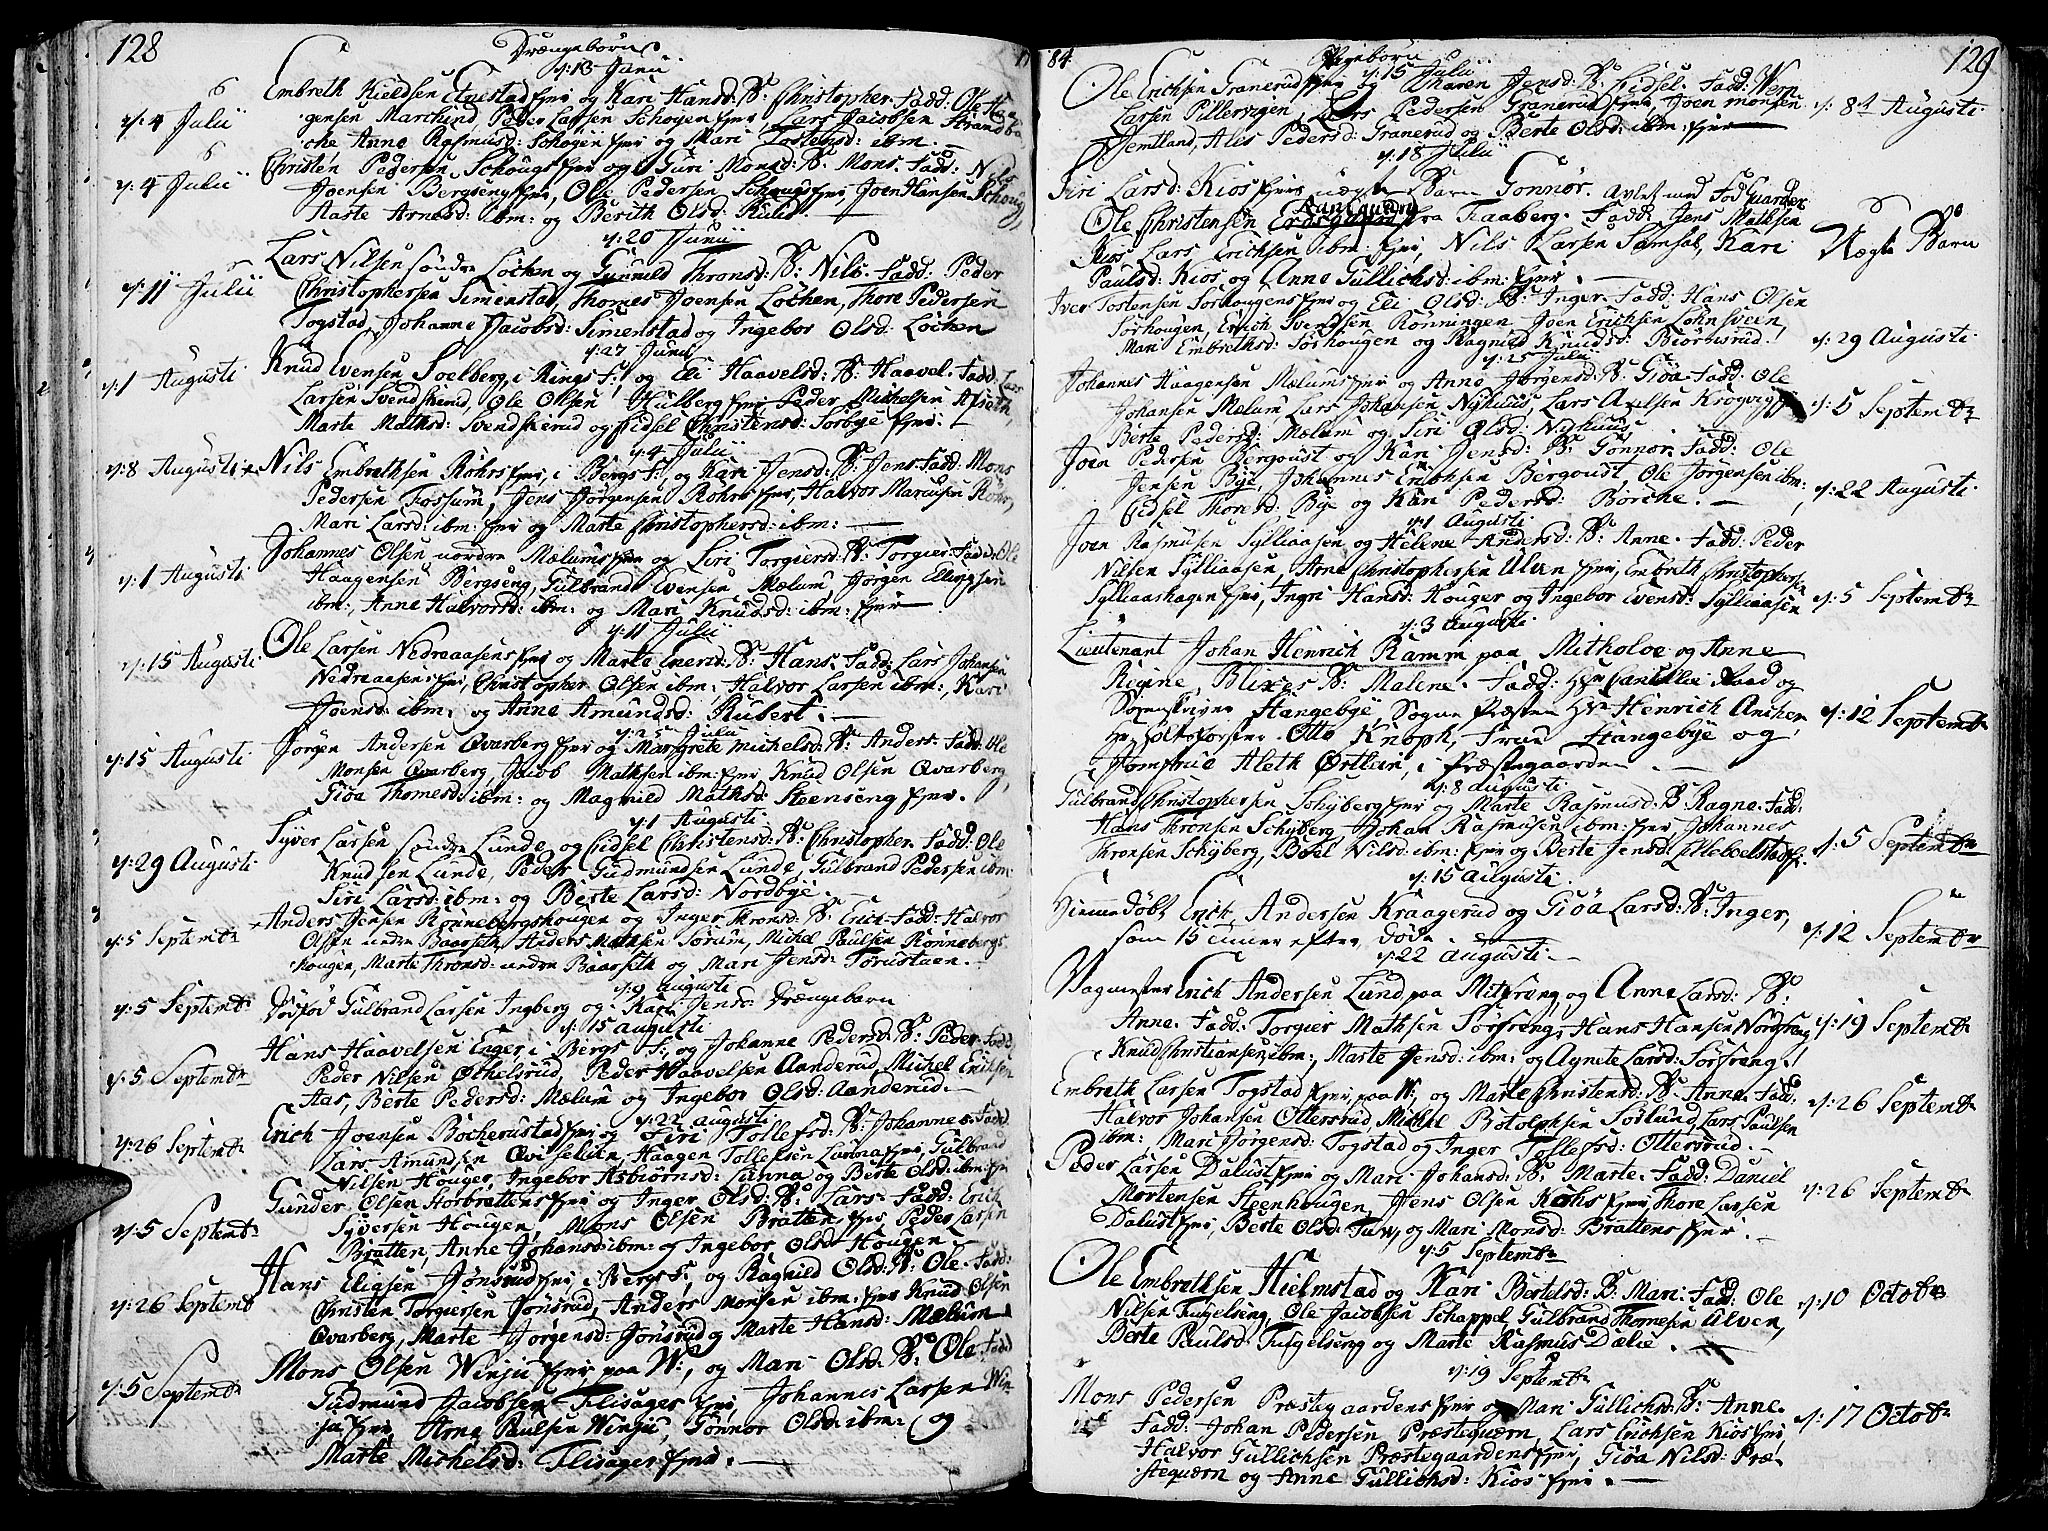 128
Drængebörn
d: 13 Junii
d: 4 Julii Embreth Kieldsen Evestad fier og Kari Hansd: B: Christopher. Fadd: Ole
gensen Marchind Peder Larsen Schogen fier, Lars Jacobsen Strandba
che Anne Rasmusd: Schogen fier og Mari Tostensd: ibm.
d: 4 Julii Christen Pedersen Schougs fier og Guri Monsd: B: Mons. Fadd: Nils
Joensen Bergseng fier, Ole Pedersen Schoug fier, Joen Hansen Schoug,
Aaste Arnesd: ibm: og Berith Olsd:
d: 20 Junii
d: 11 Julii Lars Nilsen söndre Löchen og Gunnild Thronsd: B: Nils. Fadd: Peder
Christophersen Simenstad, Thomes Joensen Löchen, Thore Pedersen
Togstad, Johanne Jacobsd: Simenstad og Ingebor Olsd: Löchen
d: 27 Junii
d: 1 Augusti Knud Evensen Soelberg, i Rings P: og Eli Haavelsd: B: Haavel. Fadd: Lars
Larsen Svendskerud, Ole Olsen Hulberg fier Peder Michelsen Alseth,
Marte Mathsd: Svendskierud og Eidsel Christensd: Sörbye fier.
d: 4 Julii
d: 8 Augusti Nils Embrethsen Röhrs fier, i Bergs P:, og Kari Jensd: B: Jens. Fadd: Mons
Pedersen Fossum, Jens Jörgensen Röhrs fier, Halvor Marcusen Röhr,
Mari Larsd: ibm: fier og Marte Christophersd: ibm:
d: 1 Augusti Johannes Olsen nordre Mælums fier og Siri Torgiersd: B: Torgier. Fadd: Ole
Haagensen Bergseng, Gulbrand Evensen Mælum, Jörgen Ellingsen
ibm:, Anne Halvorsd: ibm: og Mari Knudsd: ibm: fier
d: 11 Julii
d: 15 Augusti Ole Larsen Nedreaasens fier og Marte Enersd: B: Hans. Fadd: Lars Johansen
Nedreaasens fier, Christopher Olsen ibm: Halvor Larsen ibm:, Kari
Joensd: ibm: og Anne Amundsd: Rubert.
d: 25 Julii
d: 15 Augusti Jörgen Andersen Qvarberg fier og Margrete Michelsd: B: Anders. Fadd: Ole
Monsen Qvarberg, Jacob Mathsen ibm: fier Knud Olsen Qvarberg,
Giöa Thomesd: ibm: og Magnild Mathsd: Steenseng fier.
d: 1 Augusti
d: 29 Augusti Syver Larsen söndre Lunde og Eidsel Christensd: B: Christopher. Fadd: Ole
Knudsen Lunde, Peder Gudmundsen Lunde, Gulbrand Pedersen ibm:
Siri Larsd: ibm: og Berte Larsd: Nordbye.
d: 5 Septembr Anders Jensen Rönnebergshougen og Inger Thronsd: B: Erich. Fadd: Halvor
Olsen nedre Baarseth, Anders Mathsen Sörum, Michel Paulsen Rönnebergs
hougen, Marte Thronsd: nedre Baarseth og Mari Jensd: Torustuen.
d: 9 Augusti
d: 5 Septembr Dödföd Gulbrand Larsen Ingberg og Kari Jensd: Drængebarn
d: 15 Augusti
d: 5 Septembr Hans Haavelsen Enger, i Bergs P:, og Johanne Pedersd: B: Peder. Fadd:
Peder Nilsen Öthelsrud, Peder Haavelsen Aanderud, Michel Erichsen
Aas, Berte Pedersd: Mælum og Ingebor Olsd: Aanderud.
d: 22 Augusti
d: 26 Septembr Erich Joensen Bocherustad fier og Siri Tollefsd: B: Johannes. Fadd:
Lars Amundsen Qviselien, Haagen Tollefsen Lunna fier, Gulbrand
Nilsen Houger, Ingebor Asbiörnsd: Lunna og Berte Olsd: ibm: fier
d: 5 Septembr Gunder Olsen Horbrattens fier og Inger Olsd: B: Lars. Fadd: Erich
Syversen Hougen, Mons Olsen Bratten fier, Peder Larsen
Bratten, Anne Johansd: ibm: og Ingebor Olsd: Hougen
d: 26 Septemb Hans Eliasen Jönsrud fier i Bergs P:, og Ragnild Olsd: B: Ole. Fadd:
Christen Torgiersen Jönsrud, Anders Monsen ibm: fier Knud Olsen
Qvarberg, Marte Jörgensd: Jönsrud og Marte Hansd: Mælum
d: 5 Septembr Mons Olsen Winju fier paa W:, og Mari Olsd: B: Ole. Fadd
Gudmund Jacobsen Flisager fier, Johannes Larsen Win-
ju fier, Arne Paulsen Winju, Gonnor Olsd: ibm: og
Marte Michelsd: Flisager fier.
84 Pigebörn 129
d: 15 Julii
Ole Erichsen Granerud fier og Maren Jensd: B: Eidsel. Fadd: Wern d: 8de Augusti
Larsen Pillervigen, Lars Pedersen Granerud fier, Joen Monsen
Jemtland, Ales Pedersd: Granerud og Berte Olsd: ibm: fier
d: 18 Julii
Siri Larsd: Kios fier uægte Barn Gonnor. Avlet med Fod Guarder
Ole Christensen Aanegaard fra Faaberg. Fadd: Jens Mathsen Uægte Barn
Kios Lars Erichsen ibm: fier, Nils Larsen Samsal, Kari
Paulsd: Kios og Anne Gullichsd: ibm: fier.
Iver Tostensen Sörhougens fier og Eli Olsd: B: Inger. Fadd: Hans Olsen
Sörhougen, Erich Svendsen Rönningen Joen Erichsen Löhnsveen, d: 29 Augusti
Mari Embrethsd: Sörhougen og Ragnild Knudsd: Biörnsrud.
d: 25 Julii
Johannes Haagensen Mælums fier og Anne Jörgensd: B: Giöa. Fadd: Ole
Johansen Mælum, Lars Johansen Nyhuus, Lars Axelsen Krogvig fier d: 5 Septembr
Berte Pedersd: Mælum og Siri Olsd: Nyhuus
Joen Pedersen Bergqvist og Kari Jensd: B: Gonnor. Fadd: Ole
Jensen Bye, Johannes Erichsen Bergqvist, Ole Jörgensen ibm; d: 22 Augusti
Eidsel Thoresd: Bye og Kari Pedersd: Börche.
d: 1 Augusti
Joen Rasmusen Sylliaasen og Helene Andersd: B: Anne. Fadd: Peder
Nilsen Sylliaasen, Arne Christophersen Ulven fier, Embreth Christophersen
Sylliaashagen fier, Ingri Hansd: Houger og Ingebor Evensd: Sylliaasen d: 5 Septembr
d: 3 Augusti
Lieutenant Johan Henrich Ramm paa Mitholoe og Anne
Regine Blixes B: Malene. Fadd: Hr Cancellie Raad og
Sorenskriver Hangebye, Sogne Præsten Hr Henrich Ancher d: 12 Septembr
Hr Holtzförster Otto Knoph, Frue Hangebye og
Jomfrue Aleth Örtlein, i Præstegaarden.
d: 8 Augusti
Gulbrand Christophersen Schyberg fier og Marte Rasmusd: B: Ragne. Fadd:
Hans Thronsen Schyberg, Johan Rasmusen ibm: fier, Johannes
Thronsen Schyberg, Boel Nilsd: ibm: fier og Berte Jensd: Lilleboelstad fi: d: 5 Septembr
d: 15 Augusti
Hiemedöbt Erich Andersen Kraagerud og Giöa Larsd: B: Inger, d: 12 Septembr
som 15 timer efter döde.
d: 22 Augusti
Vagmester Erich Andersen Lund paa Mitstrang og Anne Larsd: B:
Anne. Fadd: Torgier Mathsen Sörstrang, Hans Hansen Nordstrang, d: 19 Septembr
Knud Christiansen ibm:, Marte Jensd: ibm: og Agnete Larsd: Sörstrang.
Embreth Larsen Togstad fier, paa W:, og Marte Christensd: B: Anne. Fadd:
Halvor Johansen Ottersrud, Michel Botolphsen Sörlund, Lars Paulsen d: 26 Septembr
ibm: Mari Jörgensd: Togstad og Inger Tollefsd: Ottersrud.
Peder Larsen Dalust fier og Mari Johansd: B: Marte. Fadd: Daniel
Mortensen Steenhougen, Jens Olsen Kochs fier, Thore Larsen d: 26 Septembr
Dalust fier, Berte Olsd: Tuv, og Mari Monsd: Brattens fier.
d: 5 Septembr
Ole Embrethsen Hielmstad og Kari Bertelsd: B: Mari. Fadd: Ole
Nilsen Fuglseng, Ole Jacobsen Schappel, Gulbrand Thomesen Ulven, d: 10 Octobr
Berte Paulsd: Fuglseng og Marte Rasmus Dælie.
d: 19 Septembr
Mons Pedersen Præstegaardens fier og Mari Gullichsd: B: Anne.
Fadd: Johan Pedersen Præsteqværn, Lars Erichsen Kios fier, d: 17 Octobr
Halvor Gullichsen Præstegaardens fier, Giöa Nilsd: Præ-
steqværn og Anne Gullichsd: Kios fier.